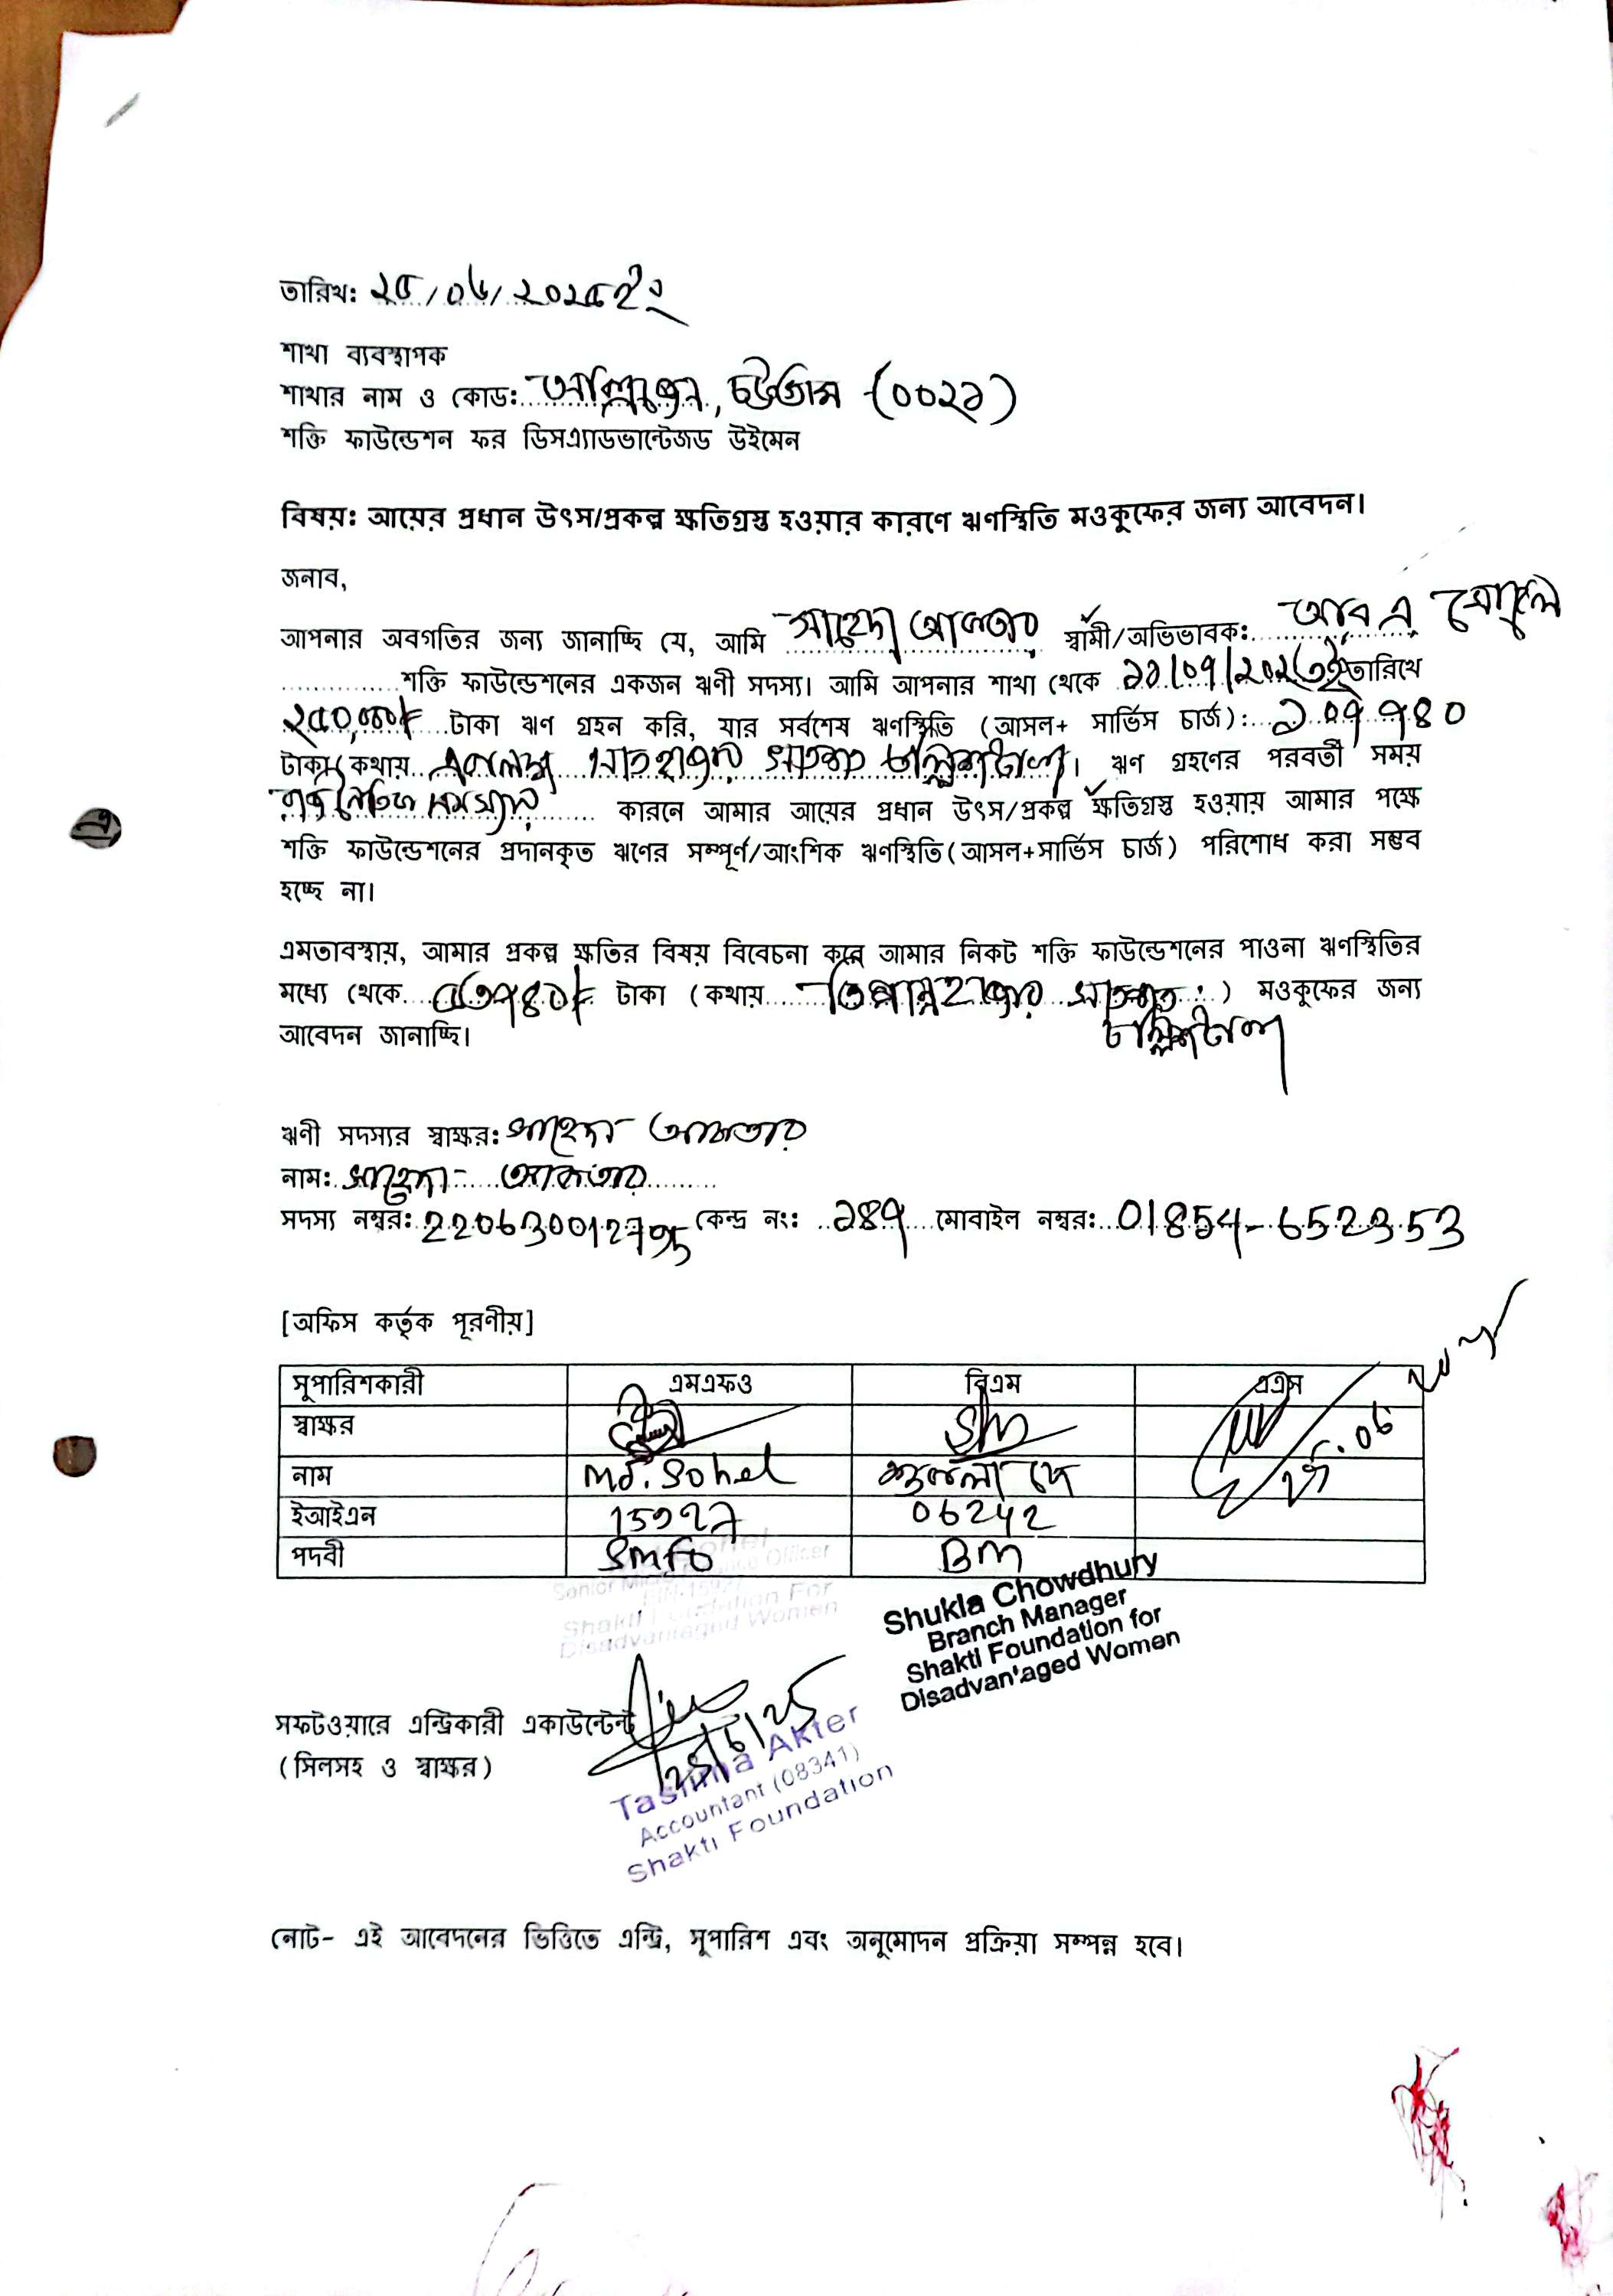 তারিখ: ২৫/০৬/২০২৫ইং
শাখা ব্যবস্থাপক
শাখার নাম ও কোড: চট্টগ্রাম (০০২১)
শক্তি ফাউন্ডেশন ফর ডিসএ্যাডভান্টেজড উইমেন
বিষয়: আয়ের প্রধান উৎস/প্রকল্প ক্ষতিগ্রস্ত হওয়ার কারণে ঋণস্থিতি মওকুফের জন্য আবেদন।
জনাব,
আপনার অবগতির জন্য জানাচ্ছি যে, আমি সাহেদা আকতার স্বামী/অভিভাবক:
শক্তি ফাউন্ডেশনের একজন ঋণী সদস্য। আমি আপনার শাখা থেকে ১১/০৭/২০২৩ইং তারিখে
২৫০,০০০/- টাকা ঋণ গ্রহন করি, যার সর্বশেষ ঋণস্থিতি (আসল+ সার্ভিস চার্জ): ১০৭৭৪০
টাকা(কথায় একলক্ষ সাতহাজার সাতশত চল্লিশটাকা)। ঋণ গ্রহণের পরবর্তী সময়
রাজনৈতিক সমস্যার কারনে আমার আয়ের প্রধান উৎস/প্রকল্প ক্ষতিগ্রস্ত হওয়ায় আমার পক্ষে
শক্তি ফাউন্ডেশনের প্রদানকৃত ঋণের সম্পূর্ণ/আংশিক ঋণস্থিতি(আসল+সার্ভিস চার্জ) পরিশোধ করা সম্ভব
হচ্ছে না।
এমতাবস্থায়, আমার প্রকল্প ক্ষতির বিষয় বিবেচনা করে আমার নিকট শক্তি ফাউন্ডেশনের পাওনা ঋণস্থিতির
মধ্যে থেকে ৫৩৭৪০/- টাকা (কথায় তিপ্পান্নহাজার সাতশত) মওকুফের জন্য
চল্লিশটাকা
আবেদন জানাচ্ছি।
ঋণী সদস্যর স্বাক্ষর: সাহেদা আকতার
নাম: সাহেদা আকতার
সদস্য নম্বর: কেন্দ্র নং: ১৪৭ মোবাইল নম্বর: 01854-652353
[অফিস কর্তৃক পূরণীয়]
সুপারিশকারী এমএফও বিএম এএস
স্বাক্ষর
নাম Md. Sohel শুকলা দে
ইআইএন 15927 06242
পদবী SMFO BM
Senior Micro Finance Officer
Shakti Foundation For
Disadvantaged Women
Shukla Chowdhury
Branch Manager
Shakti Foundation for
Disadvantaged Women
সফটওয়ারে এন্ট্রিকারী একাউন্টেন্ট
(সিলসহ ও স্বাক্ষর)
Taslima Akter
Accountant (08341)
Shakti Foundation
নোট- এই আবেদনের ভিত্তিতে এন্ট্রি, সুপারিশ এবং অনুমোদন প্রক্রিয়া সম্পন্ন হবে।